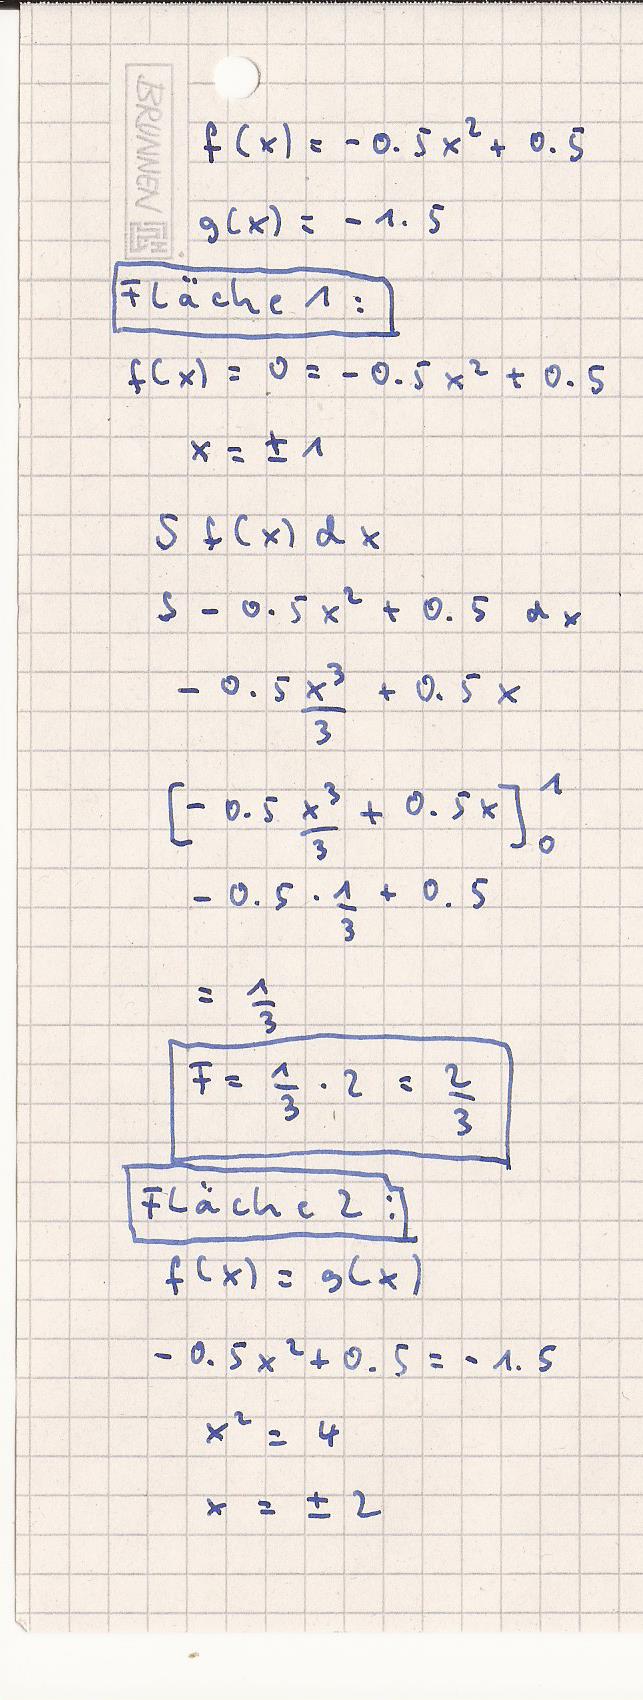 BRUNNEN
f(x) = -0.5x² + 0.5
g(x) = -1.5
Fläche 1:
f(x) = 0 = -0.5x² + 0.5
x = ±1
S f(x) dx
S -0.5x² + 0.5 dx
-0.5 x³/3 + 0.5x
[-0.5 x³/3 + 0.5x]₀¹
-0.5 · 1/3 + 0.5
= 1/3
F = 1/3 · 2 = 2/3
Fläche 2:
f(x) = g(x)
-0.5x² + 0.5 = -1.5
x² = 4
x = ±2